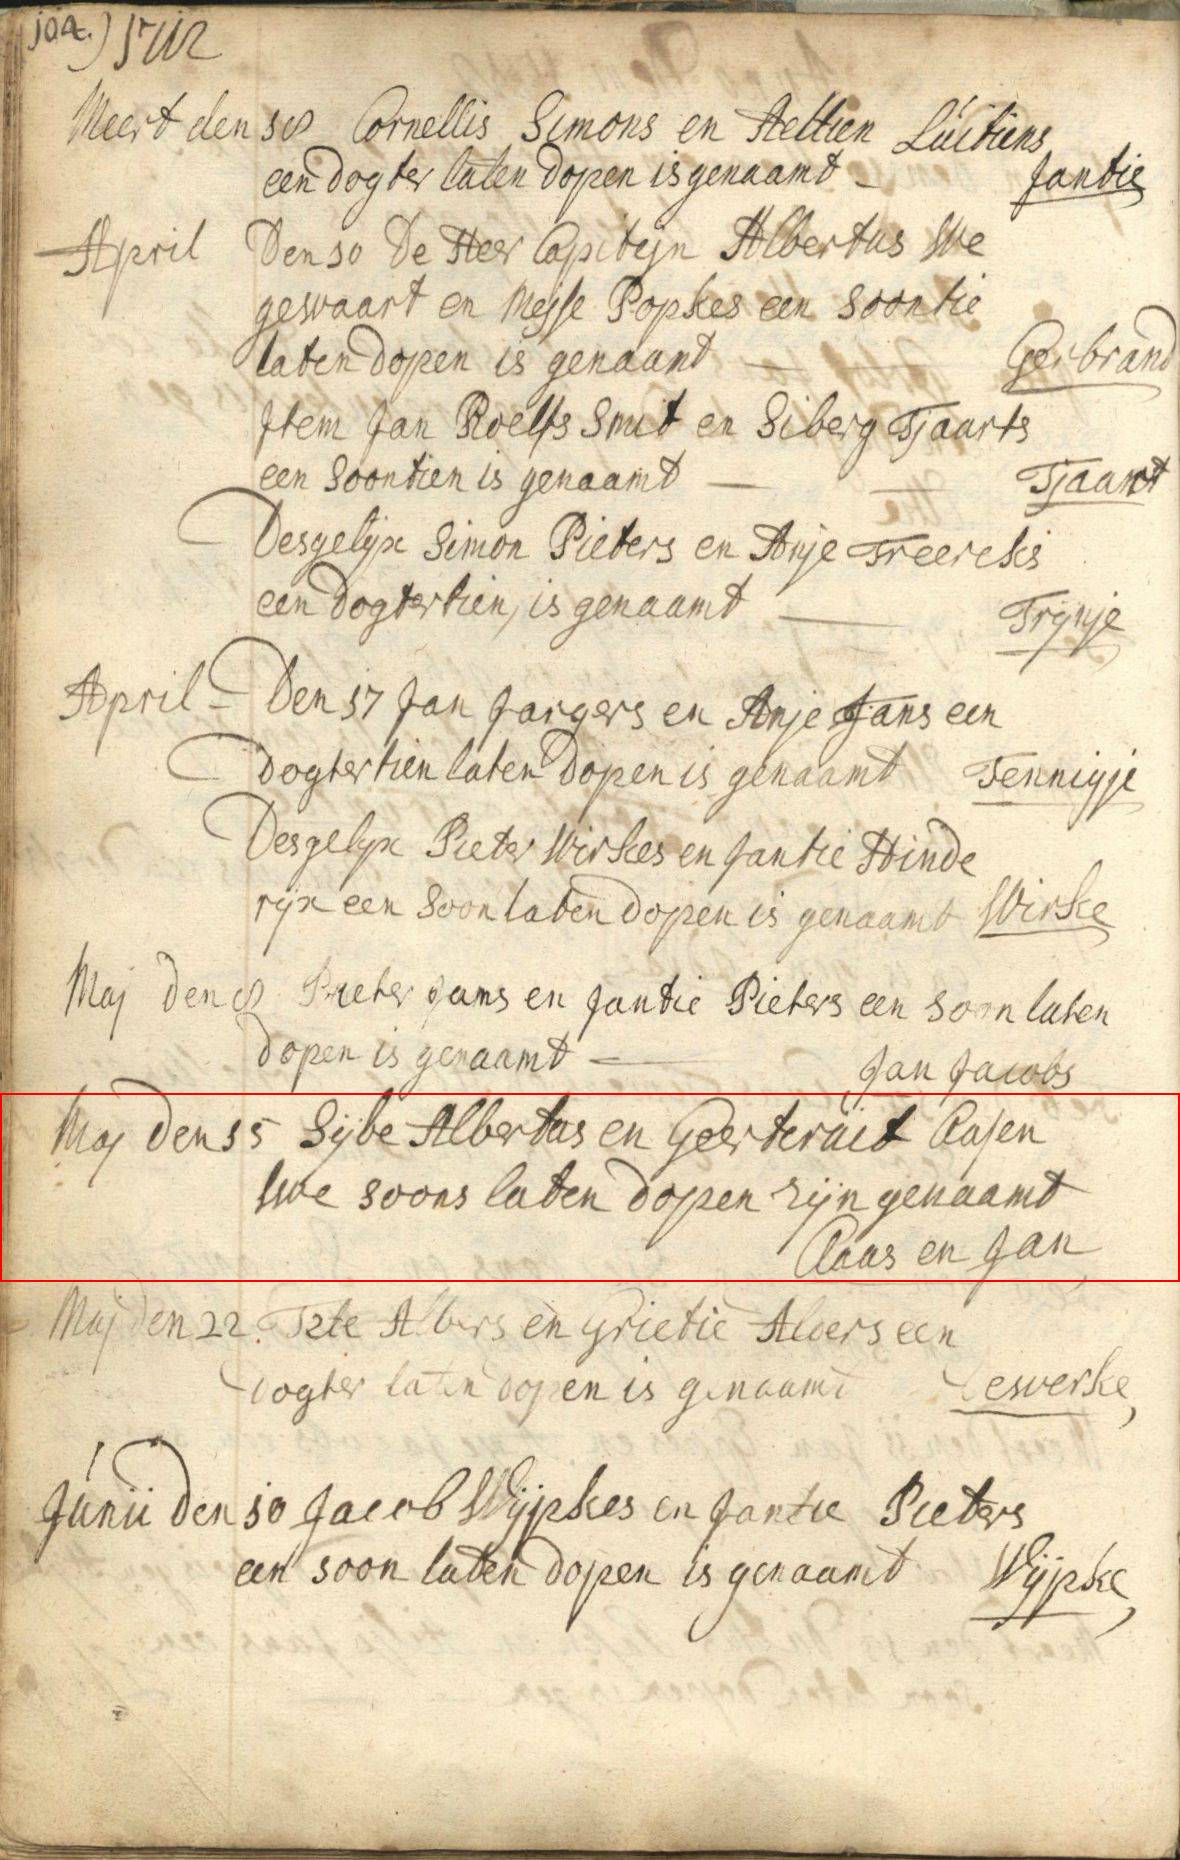 104.) 1712
Meert den 18 Cornellis Simons en Aeltien Lúitiens
een dogter laten dopen is genaamt - Jantie
April Den 10 De Heer Capiteyn Albertus We
geswaart en Popkes een soontie
laten dopen is genaant - Gerbrand
Jtem Jan Roelfs Smit en Siberg Tjaarts
een soontien is genaamt - Tjaart
Desgelijx Simon Pieters en Anje Freercks
een dogtertien, is genaamt - Trijnje
April - Den 17 Jan Jargers en Anje Jans een
dogtertien laten dopen is genaamt Tenniyje
Desgelijx Pieter Wirkes en Jantie Hinde
rijx een soon laten dopen is genaamt Wirke
Maj den 8 Pieter Jans en Jantie Pieters een soon laten
dopen is genaamt - Jan Jacobs
Maj den 15 Sijbe Albertus en Geerteruit Clasen
twe soons laten dopen zijn genaamt
Claas en Jan
Maj den 22. Albers en Grietie Alders een
dogter laten dopen is genaamt
Júnii den 10 Jacob Wijpkes en Jantie Pieters
een soon laten dopen is genaamt Wijpke,